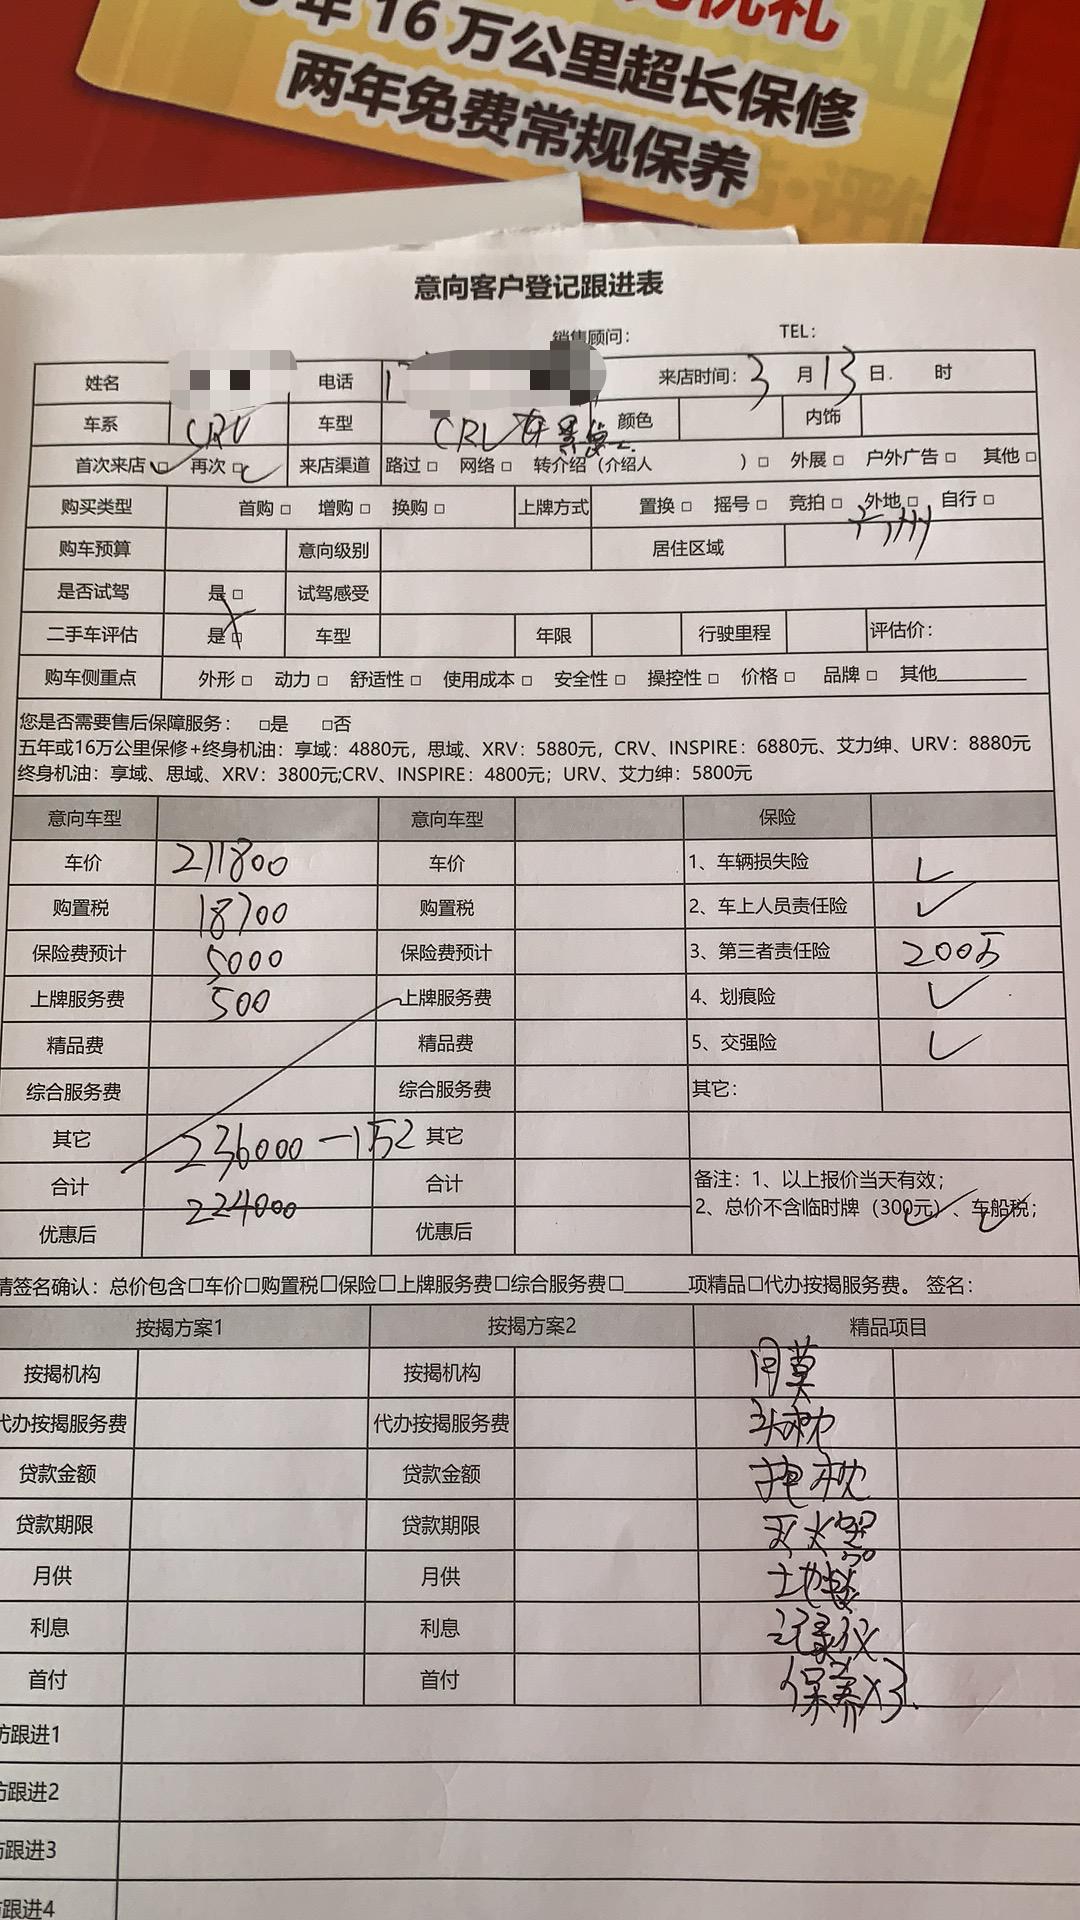 年16万公里超长保修
两年免费常规保养
意向客户登记跟进表
销售顾问： TEL：
姓名 电话 1 来店时间：3 月 13 日. 时
车系 CRV 车型 CRV 颜色 内饰
首次来店□ 再次□ 来店渠道 路过□ 网络□ 转介绍（介绍人 ）□ 外展□ 户外广告□ 其他□
购买类型 首购□ 增购□ 换购□ 上牌方式 置换□ 摇号□ 竞拍□ 外地□ 自行□
购车预算 意向级别 居住区域 广州
是否试驾 是□ 试驾感受
二手车评估 是□ 车型 年限 行驶里程 评估价：
购车侧重点 外形□ 动力□ 舒适性□ 使用成本□ 安全性□ 操控性□ 价格□ 品牌□ 其他________
您是否需要售后保障服务： □是 □否
五年或16万公里保修+终身机油：享域：4880元，思域、XRV：5880元，CRV、INSPIRE：6880元、艾力绅、URV：8880元
终身机油：享域、思域、XRV：3800元;CRV、INSPIRE：4800元；URV、艾力绅：5800元
意向车型 意向车型 保险
车价 211800 车价 1、车辆损失险 ✓
购置税 18700 购置税 2、车上人员责任险 ✓
保险费预计 5000 保险费预计 3、第三者责任险 200万
上牌服务费 500 上牌服务费 4、划痕险 ✓
精品费 精品费 5、交强险 ✓
综合服务费 综合服务费 其它：
其它 236000－152 其它
合计 224000 合计 备注：1、以上报价当天有效；
2、总价不含临时牌（300元）、车船税；
优惠后 优惠后
请签名确认：总价包含□车价□购置税□保险□上牌服务费□综合服务费□______项精品□代办按揭服务费。 签名：
按揭方案1 按揭方案2 精品项目
按揭机构 按揭机构
代办按揭服务费 代办按揭服务费 头枕
贷款金额 贷款金额 抱枕
贷款期限 贷款期限 灭火器
月供 月供
利息 利息 记录仪
首付 首付 保养x3.
访跟进1
访跟进2
访跟进3
访跟进4